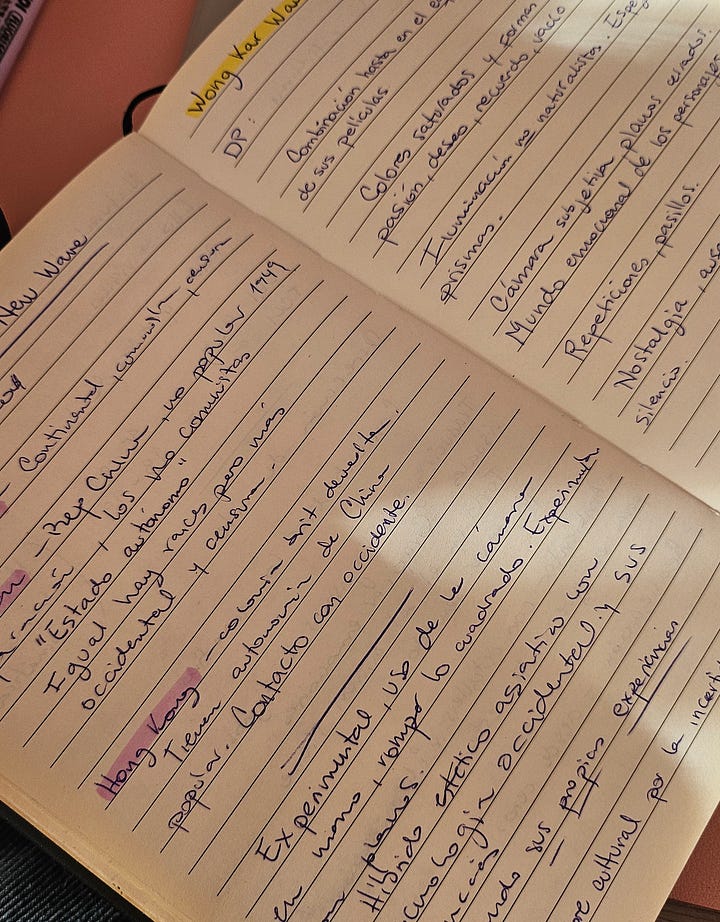 New Wave
Continental, comunista, censura
- Rep China, no popular 1949
+ los no comunistas
"Estado autónomo"
Igual hay raíces pero más
occidental y censura.
Hong Kong - colonia brit devuelta.
Tienen autonomía de China
popular. Contacto con occidente.
Experimental, uso de la cámara
en mano, rompo lo cuadrado. Experimenta
planos.
Híbrido estético asiático con
tecnología occidental y sus
sus propias experiencias
cultural por la
Wong Kar Wa
DP:
Combinación hasta en el
de sus películas
Colores saturados y forman
pasión, deseo, recuerdo, vacío
Iluminación no naturalista. Espe
prismas.
Cámara subjetiva, planos cerrados.
Mundo emocional de los personajes
Repeticiones, pasillos.
Nostalgia, aus
silencio.